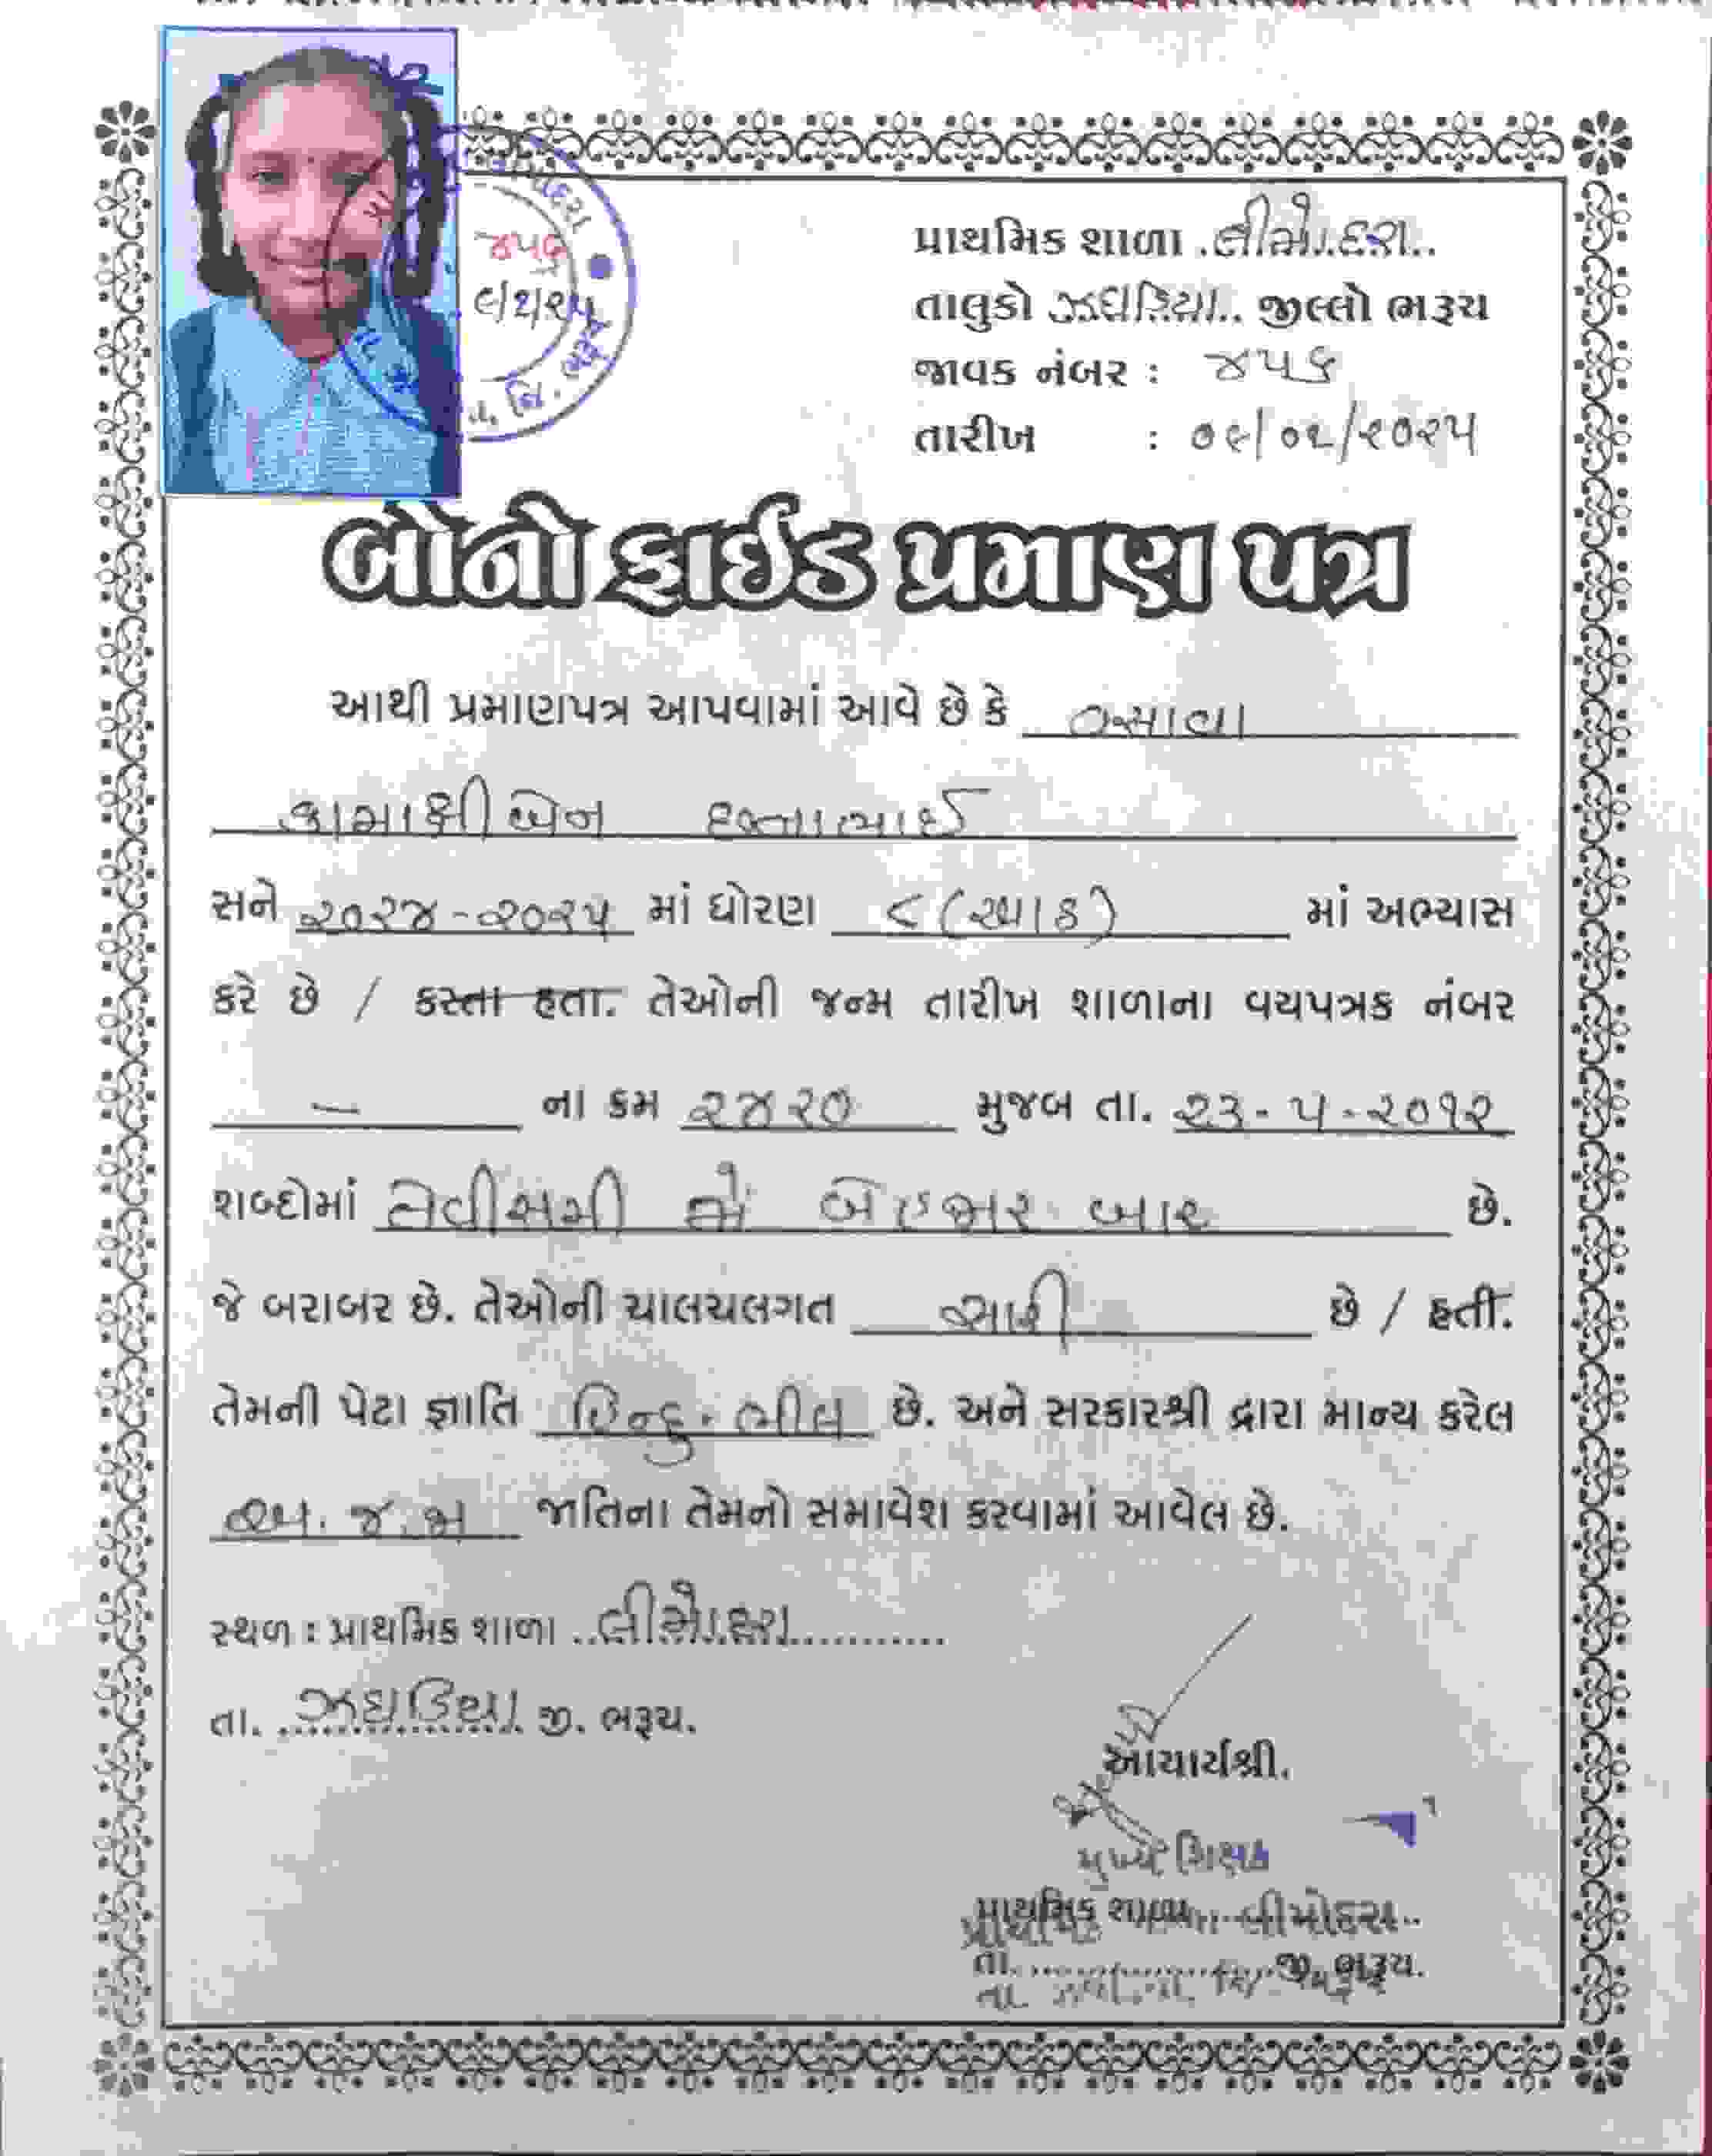 પ્રાથમિક શાળા .લીમોદરા..
તાલુકો ઝઘડિયા.. જીલ્લો ભરૂચ
જાવક નંબર : ૪૫૬
તારીખ : ૦૯/૦૨/૨૦૨૫
૪૫૬
૯/૨/૨૫
બોનો ફાઈડ પ્રમાણ પત્ર
આથી પ્રમાણપત્ર આપવામાં આવે છે કે વસાવા
કામાક્ષીબેન દત્તાભાઈ
સને ૨૦૨૪-૨૦૨૫ માં ધોરણ ૮ (આઠ) માં અભ્યાસ
કરે છે / કરતા હતા. તેઓની જન્મ તારીખ શાળાના વયપત્રક નંબર
— ના ક્રમ ૨૪૨૦ મુજબ તા. ૨૩-૫-૨૦૧૨
શબ્દોમાં તેવીસમી મે બેહજાર બાર છે.
જે બરાબર છે. તેઓની ચાલચલગત સારી છે / હતી.
તેમની પેટા જ્ઞાતિ હિન્દુ. ભીલ છે. અને સરકારશ્રી દ્વારા માન્ય કરેલ
અ.જ.જા જાતિના તેમનો સમાવેશ કરવામાં આવેલ છે.
સ્થળ : પ્રાથમિક શાળા ..લીમોદરા...........
તા. ઝઘડિયા જી. ભરૂચ.
આચાર્યશ્રી.
મુખ્ય શિક્ષક
પ્રાથમિક શાળા લીમોદરા
તા. ................. જી. ભરૂચ.